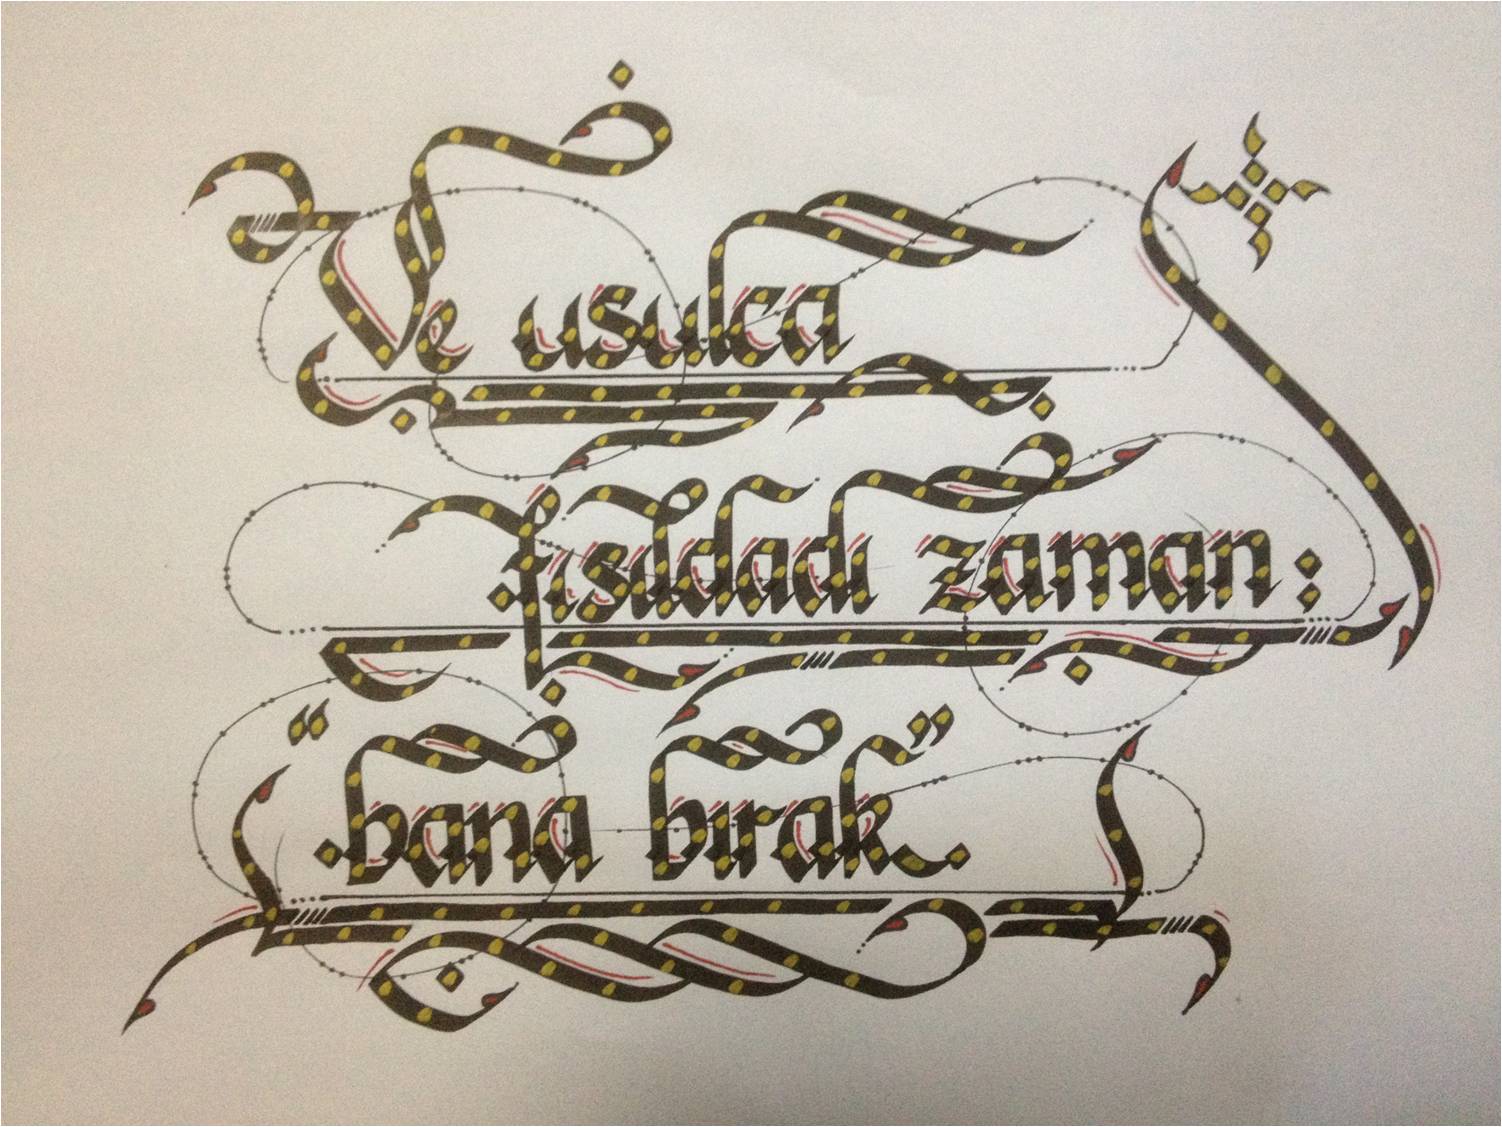 Ve usulca
fısıldadı zaman:
"bana bırak"